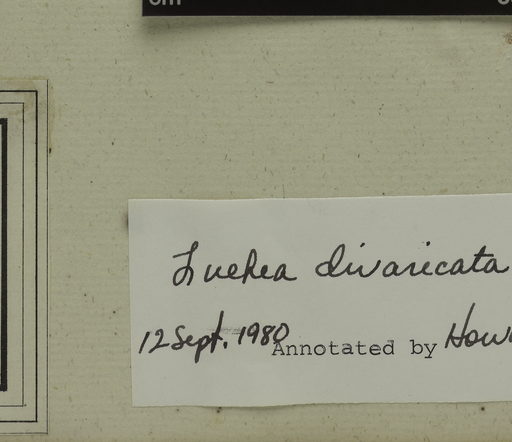 cm
Luehea divaricata
12 Sept. 1980 Annotated by